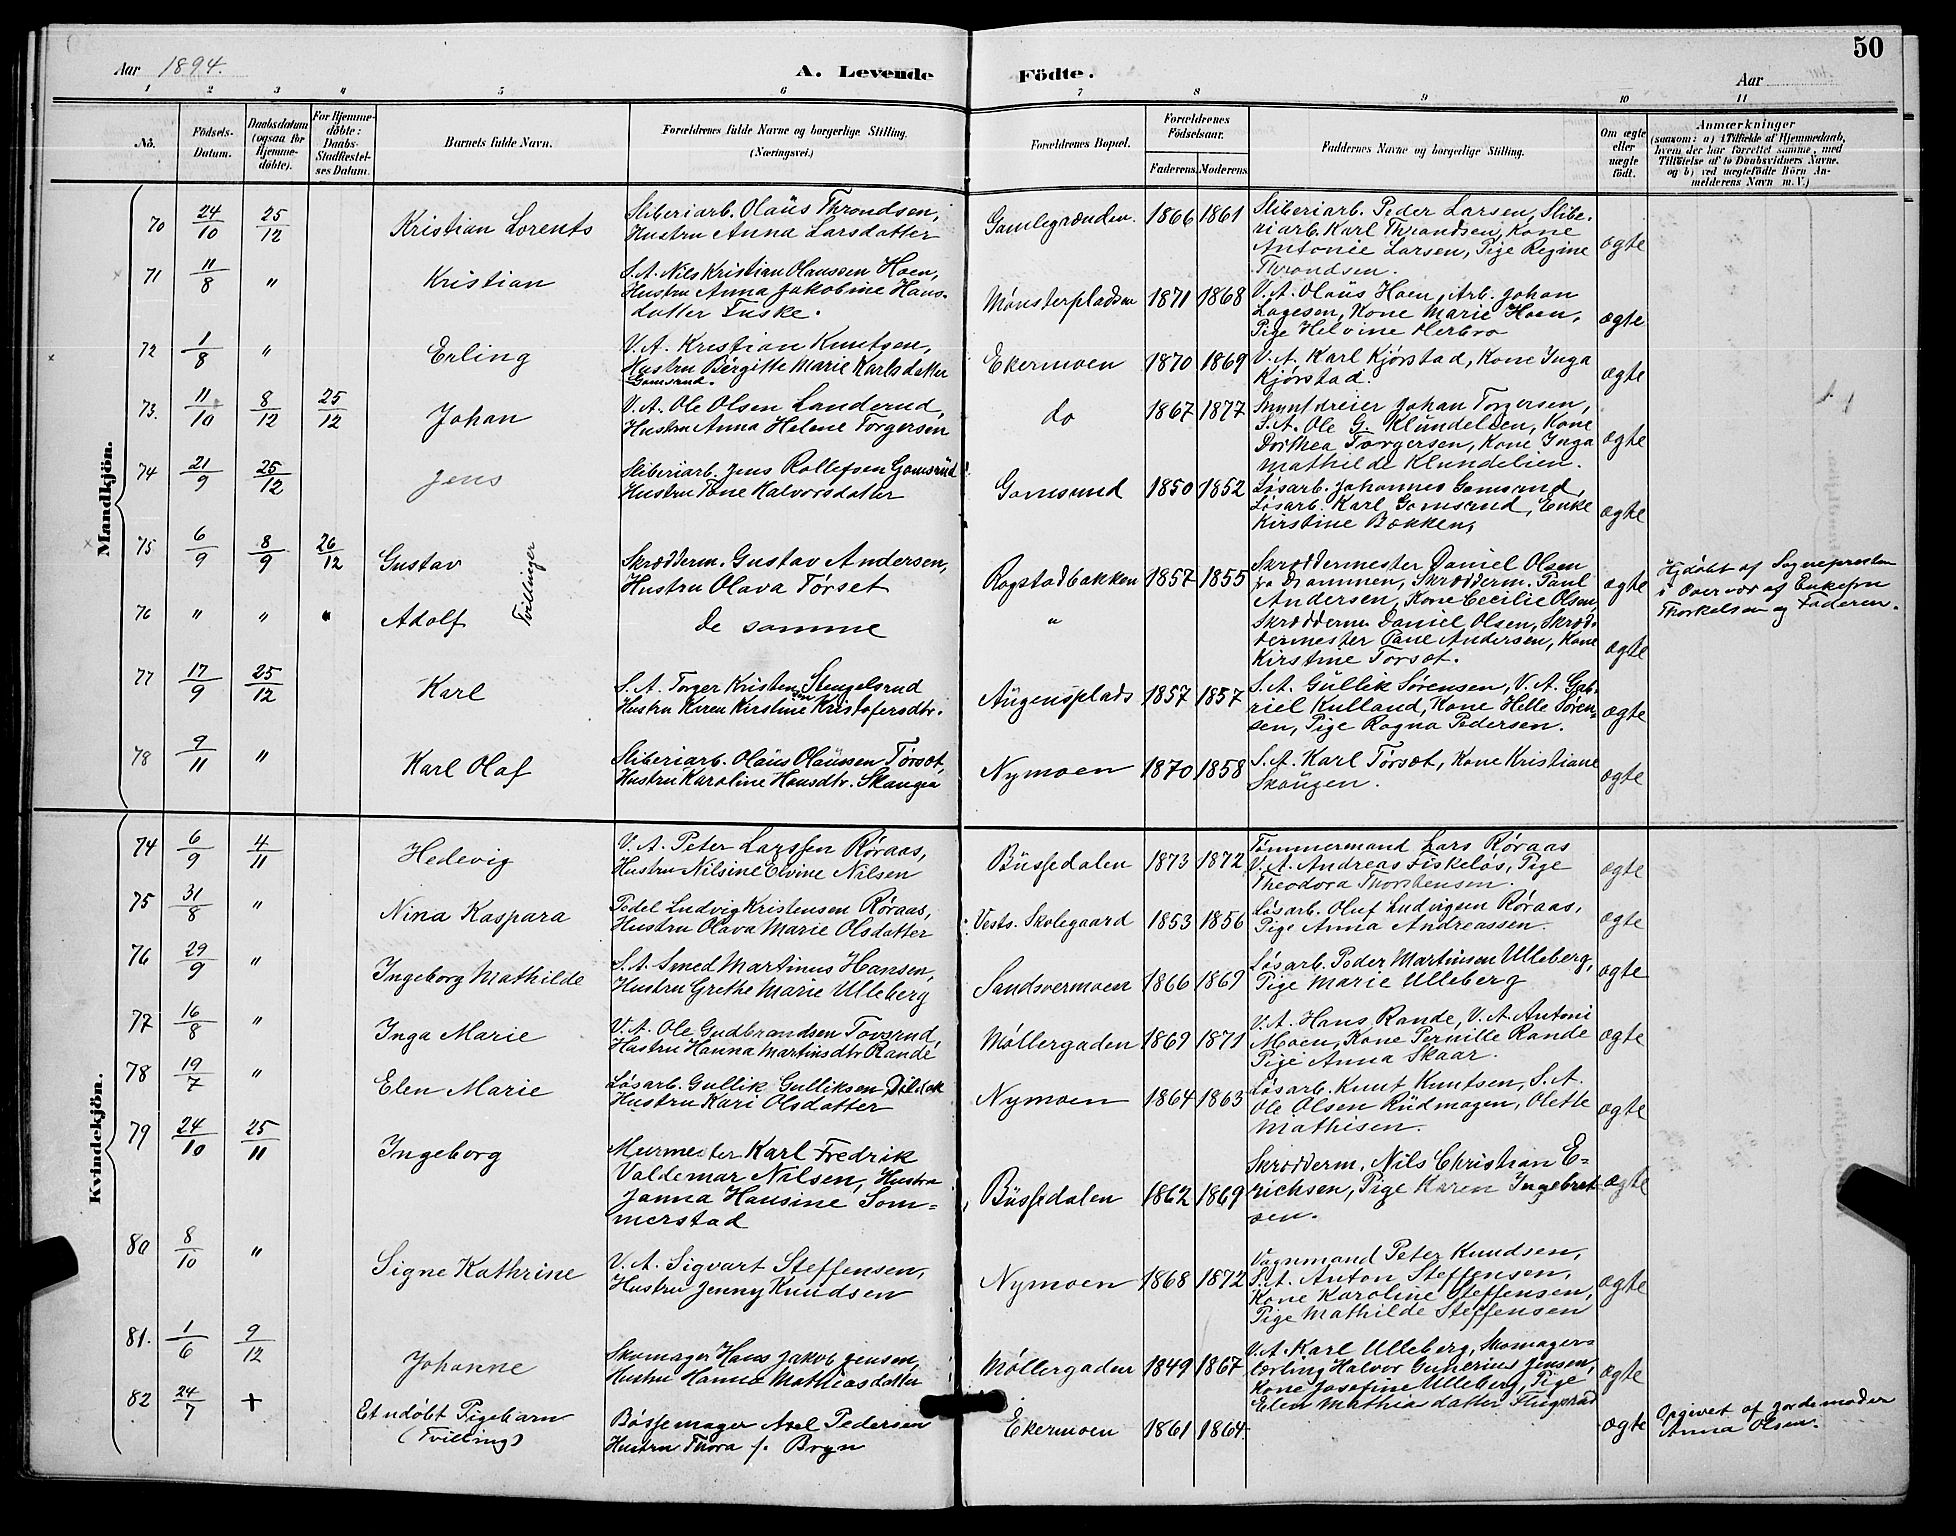 50
Aar 1894.
A. Levende
Födte.
Aar
1 2 3 4 5 6 7 8 9 10 11
No.
Födsels-
Datum.
Daabsdatum
(ogsaa for
Hjemme-
döbte).
For Hjemme-
döbte:
Daabs-
Stadfæstel-
ses Datum.
Barnets fulde Navn.
Forældrenes fulde Navne og borgerlige Stilling.
(Næringsvei.)
Forældrenes Bopæl.
Forældrenes
Födselsaar.
Faderens.
Moderens.
Faddernes Navne og borgerlige Stilling.
Om ægte
eller
uægte
født.
Anmærkninger
(saasom: a) i Tilfælde af Hjemmedaab,
hvem der har forrettet samme, med
Tilföielse af to Daabsvidners Navne.
og b) ved uægtefödte Börn An-
melderens Navn m. V.)
Mandkjön.
70 24/10 25/12 Kristian Lorents
Sliberiarb. Olaüs Throndsen,
Hustru Anna Larsdatter
Gamlegrænden. 1866 1861
Sliberiarb. Peder Larsen, Slibe-
riarb. Karl Throndsen, Kone
Antonie Larsen, Pige Regine
Throndsen.
ægte
71 11/8 " Kristian
S. A. Nils Kristian Olaussen Hoen,
Hustru Anna Jakobine Hans-
datter Fuske.
Mønsterpladsen 1871 1868
V. A. Olaüs Hoen, Arb. Johan
Lagesen, Kone Marie Hoen,
Pige Helvine Herbro
ægte
72 1/8 " Erling
V. A. Kristian Knutsen,
Hustru Birgitte Marie Karlsdatter
Gomsrud.
Ekermoen 1870 1869
V. A. Karl Kjørstad, Kone Inga
Kjørstad.
ægte
73. 11/10 8/12 25/12 Johan
V. A. Ole Olsen Landerud,
Hustru Anna Helene Torgersen
do 1867 1877
Myntdreier Johan Torgersen,
S. A. Ole G. Klundelien, Kone
Dorthea Torgersen, Kone Inga
Mathilde Klundelien.
ægte
74 21/9 25/12 Jens
Sliberiarb. Jens Rollefsen Gomsrud
Hustru Tone Halvorsdatter
Gomsrud 1850 1852
Løsarb. Johannes Gomsrud,
Løsarb. Karl Gomsrud, Enke
Kirstine Bakken,
ægte
75 6/9 8/9 26/12 Gustav
Tvillinger
Skrædderm. Gustav Andersen,
Hustru Olava Tørset
Rogstadbakken 1857 1855
Skræddermester Daniel Olsen
fra Drammen, Skrædderm. Paul
Andersen, Kone Cecilie Olsen
ægte
Hjdøbt af Sognepresten
i Overvær af Enkefru
Thorkelsen og Faderen.
76 " " " Adolf
De samme
"
Skrædderm. Daniel Olsen, Skræd-
dermester Paul Andersen, Kone
Kirstine Torsæt.
ægte
77 17/9 25/12 Karl
S. A. Torger Kristensen Stengelsrud
Hustru Karen Kirstine Kristofersdtr.
Augensplads 1857 1857
S. A. Güllik Sørensen, V. A. Gab-
riel Kulland, Kone Helle Søren-
sen, Pige Ragna Pedersen.
ægte
78 9/11 " Karl Olaf
Sliberiarb. Olaüs Olaüssen Tørsæt,
Hustru Karoline Hansdtr. Skaugen
Nymoen 1870 1858
S. A. Karl Tørsæt, Kone Kristiane
Skaugen.
ægte
Kvindekjön.
74 6/9 4/11 Hedevig
V. A. Peter Larssen Røraas,
Hustru Nilsine Elvine Nilsen
Büssedalen 1873 1872
Tømmermand Lars Røraas
V. A. Andreas Fiskeløs, Pige
Theodora Thorstensen.
ægte
75 31/8 " Nina Kaspara
Pedel Ludvig Kristensen Røraas,
Hustru Olava Marie Olsdatter
Vests. Skolegaard 1853 1856
Løsarb. Oluf Ludvigsen Røraas,
Pige Anna Andreassen.
ægte
76 29/9 " Ingeborg Mathilde
S. A. Smed Martinus Hansen,
Hustru Grethe Marie Ulleberg
Sandsværmoen 1866 1869
Løsarb. Peder Martinsen Ulleberg,
Pige Marie Ulleberg
ægte
77 16/8 " Inga Marie
V. A. Ole Gudbrandsen Tovsrud,
Hustru Hanna Martinsdtr Rande
Møllergaden 1869 1871
V. A. Hans Rande, V. A. Antoni
Moen, Kone Pernille Rande
Pige Anna Skaar.
ægte
78 19/7 " Elen Marie
Løsarb. Gullik Gulliksen
Hustru Kari Olsdatter
Nymoen 1864 1863
Løsarb. Knut Knutsen, S. A.
Ole Olsen Rüdmogen, Olette
Mathisen.
ægte
79 24/10 25/11 Ingeborg
Murmester Karl Fredrik
Valdemar Nilsen, Hustru
Janna Hansine Som-
merstad
Büssedalen 1862 1869
Skrædderm. Nils Christian E-
richsen, Pige Karen Ingebret-
sen.
ægte
80 8/10 " Signe Kathrine
V. A. Sigvart Steffensen,
Hustru Jenny Knudsen
Nymoen 1868 1872
Vognmand Peter Knudsen,
S. A. Anton Steffensen,
Kone Karoline Steffensen,
Pige Mathilde Steffensen
ægte
81. 1/6 9/12 Johanne
Skomager Hans Jakob Jensen,
Hustru Hanna Mathiasdatter
Møllergaden 1849 1867
V. A. Karl Ulleberg, Skomager-
lærling Halvor Gunerius Jensen,
Kone Josefine Ulleberg, Pige
Elen Mathiadatter Flugsrud
ægte
82 24/7 + Et udøbt Pigebarn
(Tvilling)
Bøssemager Axel Pedersen
Hustru Thora f. Bryn
Ekermoen 1861 1864
ægte
Opgivet af Jordemoder
Anna Olsen.